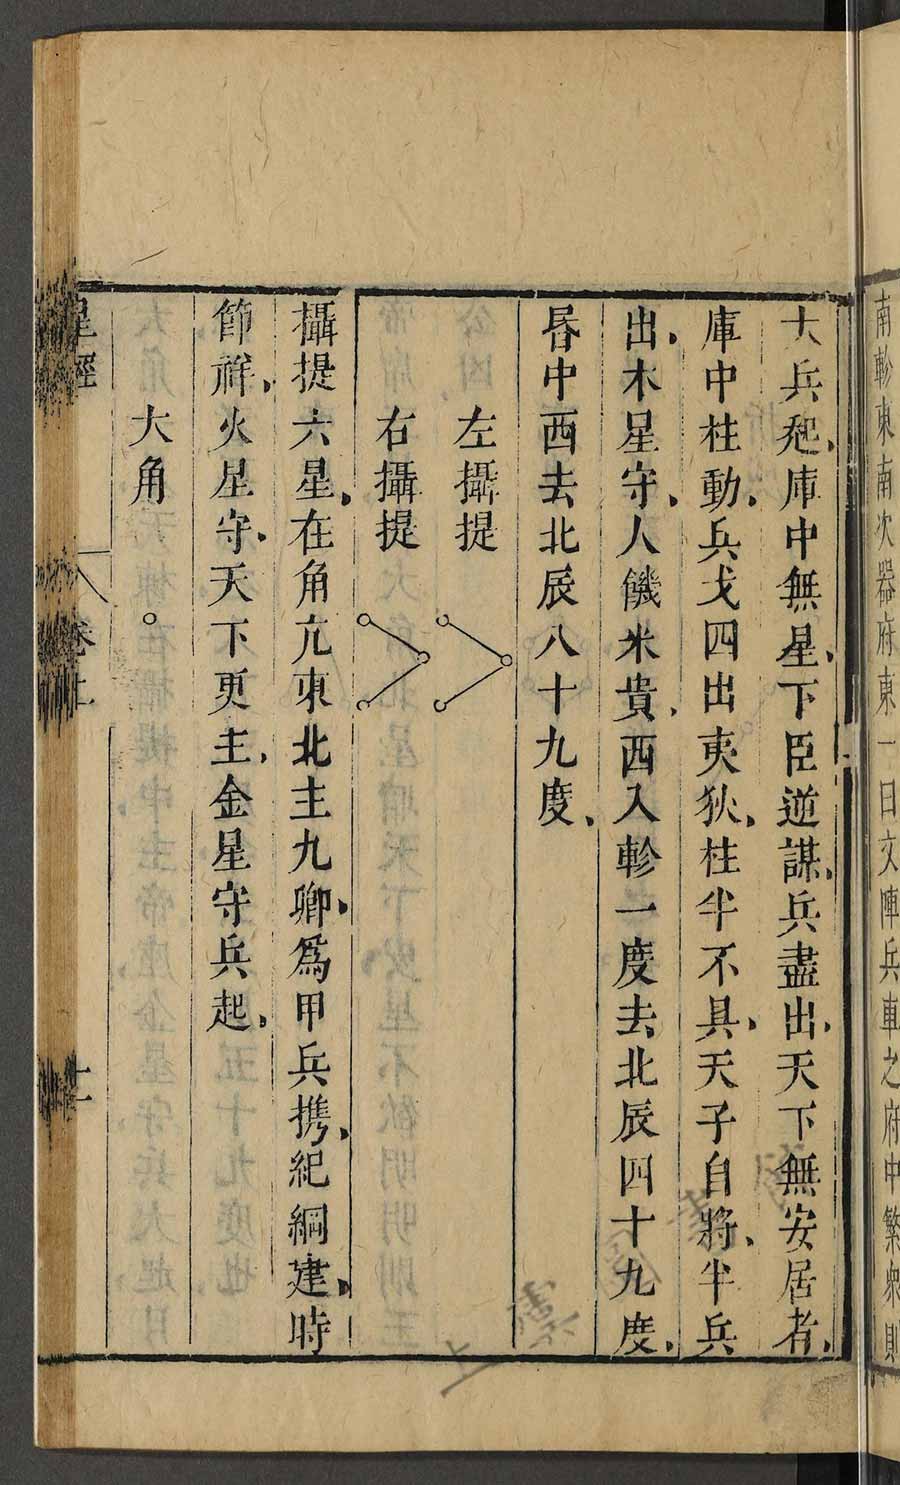 南軫東南次器府東一曰文陣兵車之府中繁衆則
大兵起庫中無星下臣逆謀兵盡出天下無安居者
庫中柱動兵戈四出夷狄柱半不具天子自將半兵
出木星守人饑米貴西入軫一度去北辰四十九度
昬中西去北辰八十九度
左攝提
右攝提
攝提六星在角亢東北主九卿爲甲兵携紀綱建時
節祥火星守天下更主金星守兵起
大角
星經
卷上
十一